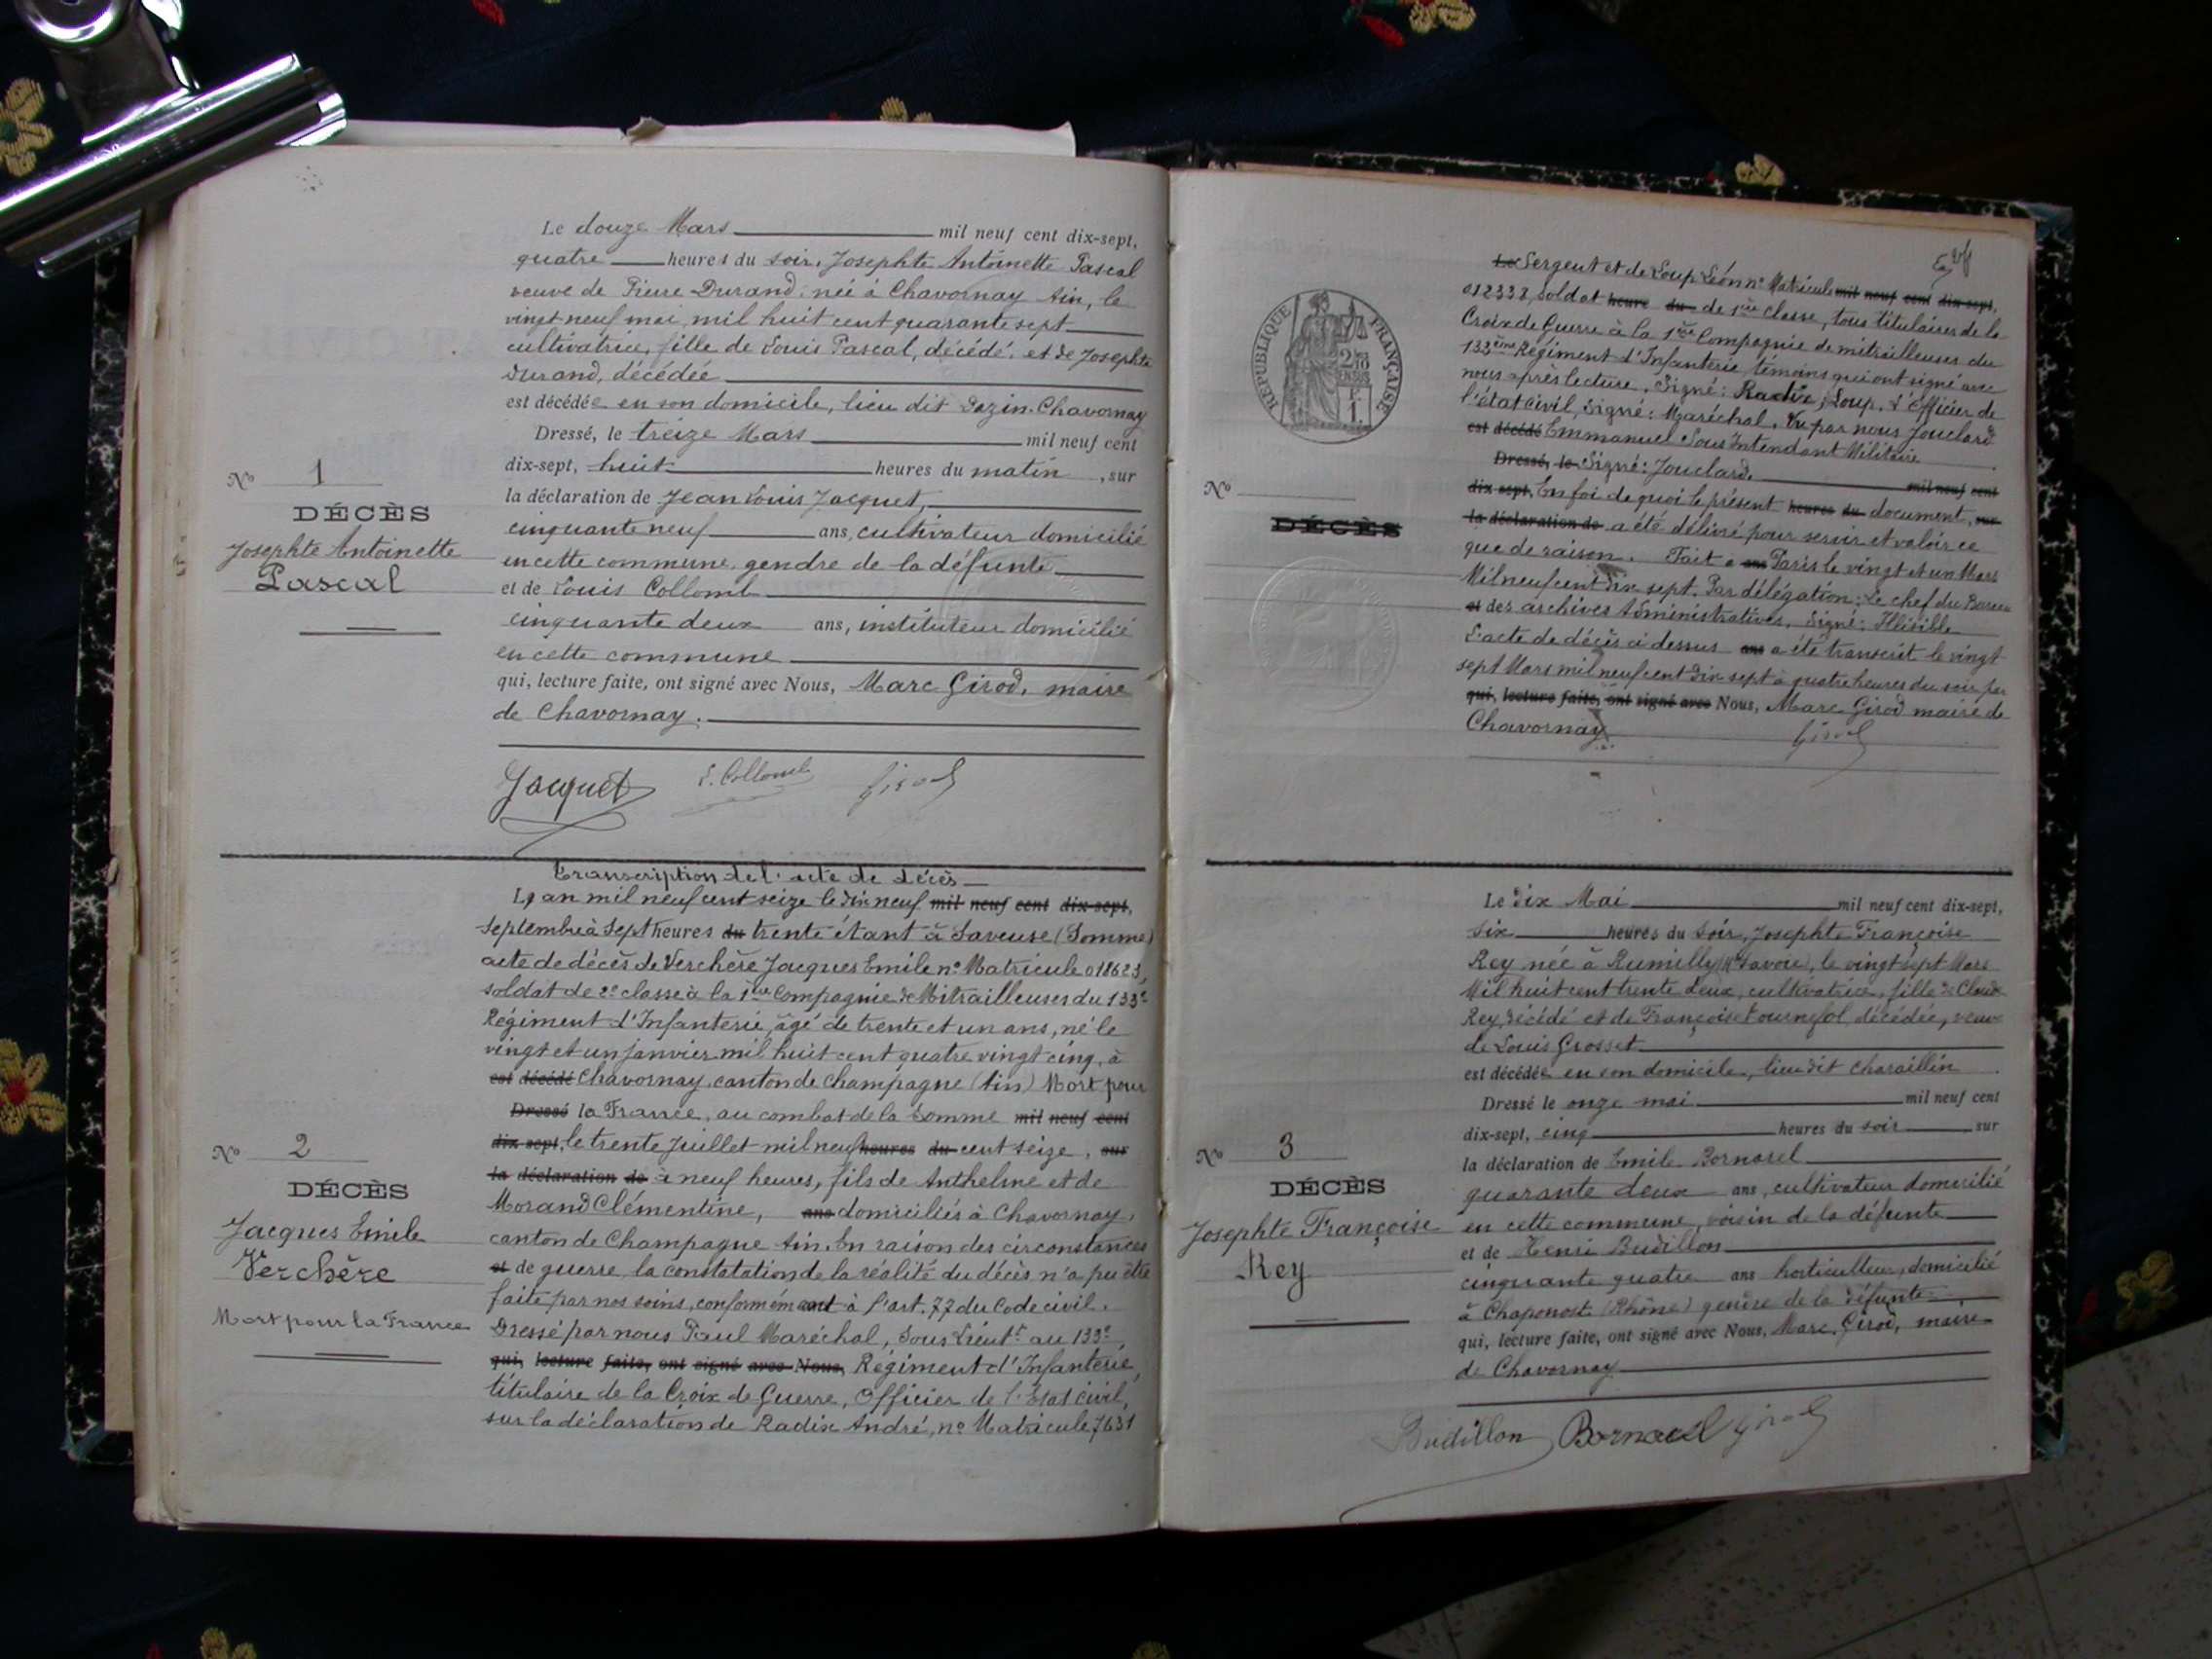 Le douze Mars mil neuf cent dix-sept,
quatre heures du soir, Josephte Antoinette Pascal
veuve de Pierre Durand, née à Chavornay Ain, le
vingt neuf mai mil huit cent quarante sept
cultivatrice, fille de Louis Pascal, décédé, et de Josephte
Durand, décédée
est décédée en son domicile, lieu dit Dazin-Chavornay
Dressé, le treize Mars mil neuf cent
dix-sept, huit heures du matin, sur
la déclaration de Jean Louis Jacquet,
cinquante neuf ans, cultivateur domicilié
en cette commune, gendre de la défunte
et de Louis Collomb
cinquante deux ans, instituteur domicilié
en cette commune
qui, lecture faite, ont signé avec Nous, Marc Girod, maire
de Chavornay.
Jacquet L. Collomb Girod
No 1
DÉCÈS
Josephte Antoinette
Pascal
Transcription de l'acte de décès
L'an mil neuf cent seize le dix neuf mil neuf cent dix-sept,
Septembre à Sept heures du trente étant à Saveuse (Somme)
acte de décès de Verchère Jacques Emile no Matricule 018623,
soldat de 2e classe à la 1ère Compagnie de Mitrailleuses du 133e
Régiment d'Infanterie, âgé de trente et un ans, né le
vingt et un janvier mil huit cent quatre vingt cinq, à
est décédé Chavornay, canton de Champagne (Ain) Mort pour
Dressé la France, au combat de la Somme mil neuf cent
dix-sept, le trente Juillet mil neuf heures du cent seize, sur
la déclaration de à neuf heures, fils de Anthelme et de
Morand Clémentine, ans domiciliés à Chavornay,
canton de Champagne Ain. En raison des circonstances
et de guerre, la constatation de la réalité du décès n'a pu être
faite par nos soins, conformément à l'art. 77 du Code civil.
Dressé par nous Paul Maréchal, Sous Lieutt au 133e
qui, lecture faite, ont signé avec Nous, Régiment d'Infanterie,
titulaire de la Croix de Guerre, Officier de l'Etat Civil,
sur la déclaration de Radix André, no Matricule 7631
No 2
DÉCÈS
Jacques Emile
Verchère
Mort pour la France
Le Sergent et de Loup Léon no Matricule mil neuf cent dix-sept,
012338, Soldat heure du de 1ère classe, tous titulaires de la
Croix de Guerre à la 1ère Compagnie de mitrailleuses du
133ème Régiment d'Infanterie témoins qui ont signé avec
nous après lecture. Signé: Radix, Loup. L'Officier de
l'état Civil, Signé: Maréchal. Vu par nous Jouclard
est décédé Emmanuel Sous Intendant Militaire
Dressé, le Signé: Jouclard. mil neuf cent
dix-sept, En foi de quoi le présent heures du document, sur
la déclaration de a été délivré pour servir et valoir ce
que de raison. Fait à ans Paris le vingt et un Mars
Mil neuf cent dix sept. Par délégation: Le chef du Bureau
et des archives Administratives. Signé: Illisible
L'acte de décès ci dessus ans a été transcrit le vingt
sept Mars mil neuf cent dix sept à quatre heures du soir par
qui, lecture faite, ont signé avec Nous, Marc Girod maire de
Chavornay
Girod
RÉPUBLIQUE FRANÇAISE
No
DÉCÈS
Le dix Mai mil neuf cent dix-sept,
six heures du soir, Josephte Françoise
Rey née à Rumilly (Hte Savoie), le vingt sept Mars
Mil huit cent trente deux, cultivatrice, fille de Claude
Rey, décédé et de Françoise Tournfol décédée, veuve
de Louis Grosset
est décédée en son domicile, lieu dit Charaillin
Dressé le onze mai mil neuf cent
dix-sept, cinq heures du soir sur
la déclaration de Emile Bornarel
quarante deux ans, cultivateur domicilié
en cette commune, voisin de la défunte
et de Henri Budillon
cinquante quatre ans horticulteur, domicilié
à Chaponost (Rhône) gendre de la défunte
qui, lecture faite, ont signé avec Nous, Marc Girod, maire
de Chavornay
Budillon Bornarel Girod
No 3
DÉCÈS
Josephte Françoise
Rey